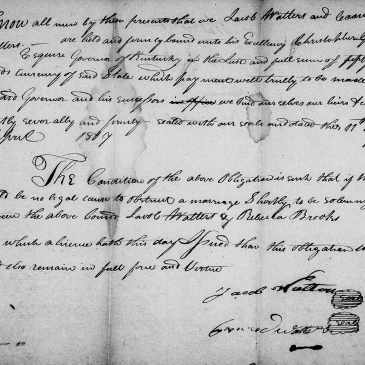 Know all men by these presents that we Jacob Watters and Conra
tters. are held and firmly bound unto his Excellency Christopher G
Esquire Governor of Kentucky in the Just and full sum of fift
ds currency of said State which payment well & truly to be made
said Governor and his successors we bind ourselves our heirs &c
tly severally and firmly sealed with our seals and dated this 11th
April 1807
The Condition of the above Obligation is such that if th
to be no legal cause to obstruct a marriage Shortly to be solemn
tween the above bound Jacob Watters & Rebecca Brooks
which a licence hath this day Issued than this obligation to
t else remain in full force and Virtue
Jacob Watters
seal